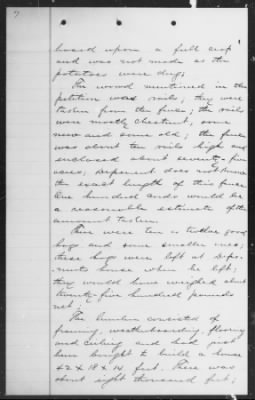 7
based upon a full crop
and was not made as the
potatoes were dug.
The wood mentioned in the
petition was rails; they were
taken from the fence; the rails
were mostly chestnut, some
new and some old; the fence
was about ten rails high and
enclosed about seventy-five
acres; deponent does not know
the exact length of this fence.
One hundred cords would be
a reasonable estimate of the
amount taken.
There were ten or twelve good
hogs and some smaller ones;
these hogs were left at depo-
nents house when he left;
they would have weighed about
twenty-five hundred pounds
net;
The lumber consisted of
framing, weatherboarding, flooring
and ceiling and had just
been bought to build a house
42 x 18 x 14 feet. There was
about eight thousand feet;